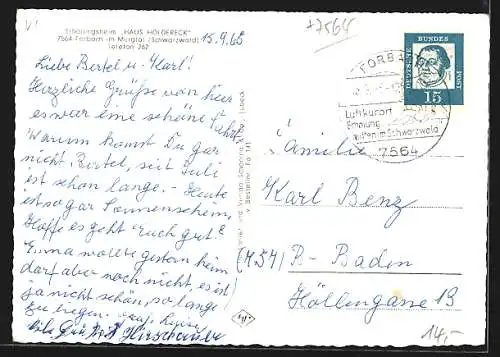 +7564
Erholungsheim „HAUS HOLDERECK"
7564 Forbach im Murgtal (Schwarzwald)
Telefon 262
15.9.65
Liebe Bertel u. Karl!
Herzliche Grüße von hier
es war eine schöne Fahrt
Warum kamst Du gar
nicht Bertel, seit Juli
ist schon lange. - Heute
ist sogar Sonnenschein,
Hoffe es geht Euch gut?
Emma wollte gestern heim
darf aber noch nicht, es ist
ja nicht schön, so lange
zu liegen.
Hirschauer
FORBA
Luftkurort
Erholung
mitten im Schwarzwald
7564
DEUTSCHE BUNDESPOST
15
Familie
Karl Benz
(757) B.-Baden
Höllengasse 13
14,-